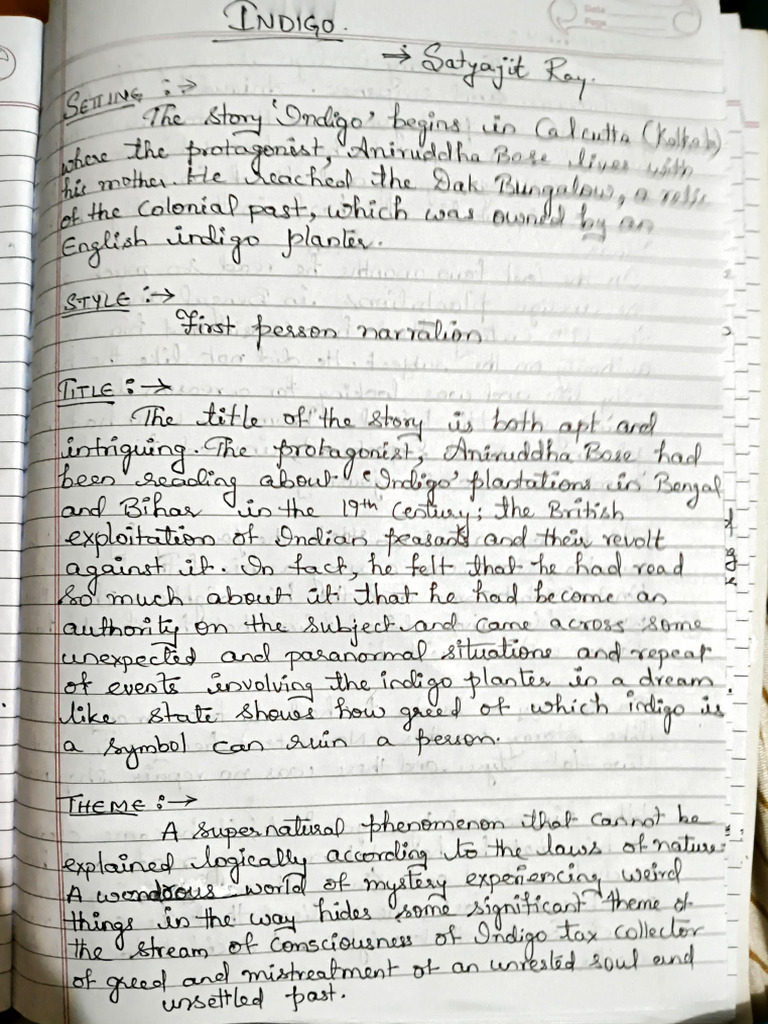 Date
Page
INDIGO.
→ Satyajit Ray.
SETTING :→
The story 'Indigo' begins in Calcutta (Kolkata)
where the protagonist, Aniruddha Bose lives with
his mother. He reached the Dak Bungalow, a relic
of the Colonial past, which was owned by an
English indigo planter.
STYLE :→
First person narration
TITLE :→
The title of the story is both apt and
intriguing. The protagonist, Aniruddha Bose had
been reading about 'Indigo' plantations in Bengal
and Bihar in the 19th Century; the British
exploitation of Indian peasants and their revolt
against it. In fact, he felt that he had read
so much about it that he had become an
authority on the subject and came across some
unexpected and paranormal situations and repeat
of events involving the indigo planter in a dream
like state shows how greed of which indigo is
a symbol can ruin a person.
THEME :→
A supernatural phenomenon that cannot be
explained logically according to the laws of nature.
A wondrous world of mystery experiencing weird
things in the way hides some significant theme of
the stream of consciousness of Indigo tax collector
of greed and mistreatment of an unrested soul and
unsettled past.